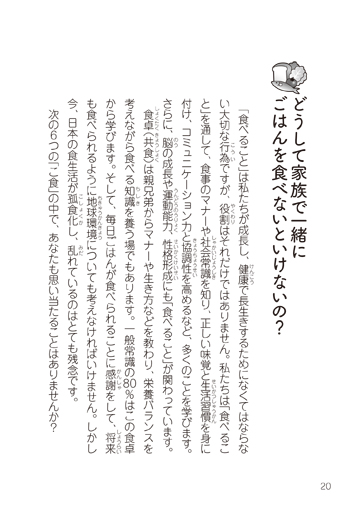 どうして家族で一緒に
ごはんを食べないといけないの？
「食べること」は私たちが成長し、健康で長生きするためになくてはならな
い大切な行為ですが、役割はそれだけではありません。私たちは「食べるこ
と」を通して、食事のマナーや社会常識を知り、正しい味覚と生活習慣を身に
付け、コミュニケーション力と協調性を高めるなど、多くのことを学びます。
さらに、脳の成長や運動能力、性格形成にも「食べること」が関わっています。
食卓（共食）は親兄弟からマナーや生き方などを教わり、栄養バランスを
考えながら食べる知識を養う場でもあります。一般常識の80％はこの食卓
から学びます。そして、毎日ごはんが食べられることに感謝をして、将来
も食べられるように地球環境についても考えなければいけません。しかし
今、日本の食生活が孤食化し、乱れているのはとても残念です。
次の6つの「こ食」の中で、あなたも思い当たることはありませんか？
20